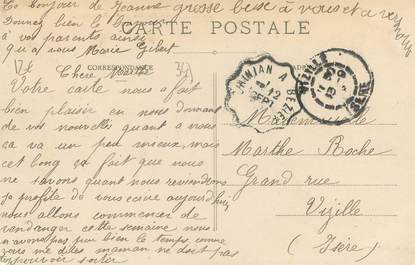 Le bonjour de Jeanne grosse bise à vous et a
Donnez bien le bonjour
à vos parents ainsi
qu'a vous Marie Gilbert
CARTE POSTALE
CORRESPONDANCE
Chere
Votre carte nous a fait
bien plaisir en nous donnant
de vos nouvelles quant a nous
ça va un peu mieux mais
cet long ça fait que nous
ne savons quant nous reviendrons
je profite de vous ecrire aujourd'hui
nous allons commencer de
vendanger cette semaine nous
n'avons pas peur bien le temps comme
vous me dites maman ne doit pas
pouvoir sortir
INIAN A BEZIE
12
VIZILLE
ISÈRE
Mademoiselle
Marthe Roche
Grand rue
Vizille
(Isère)